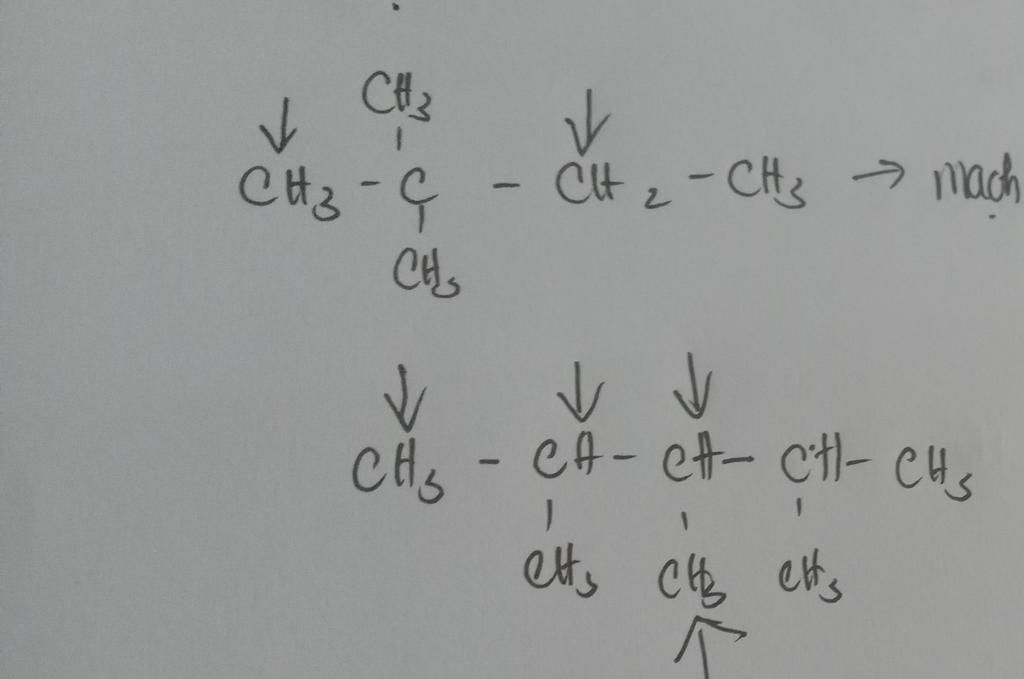 CH3
CH3 - C - CH2 - CH3 → mạch
CH3
CH3 - CH - CH - CH - CH3
CH3 CH3 CH3